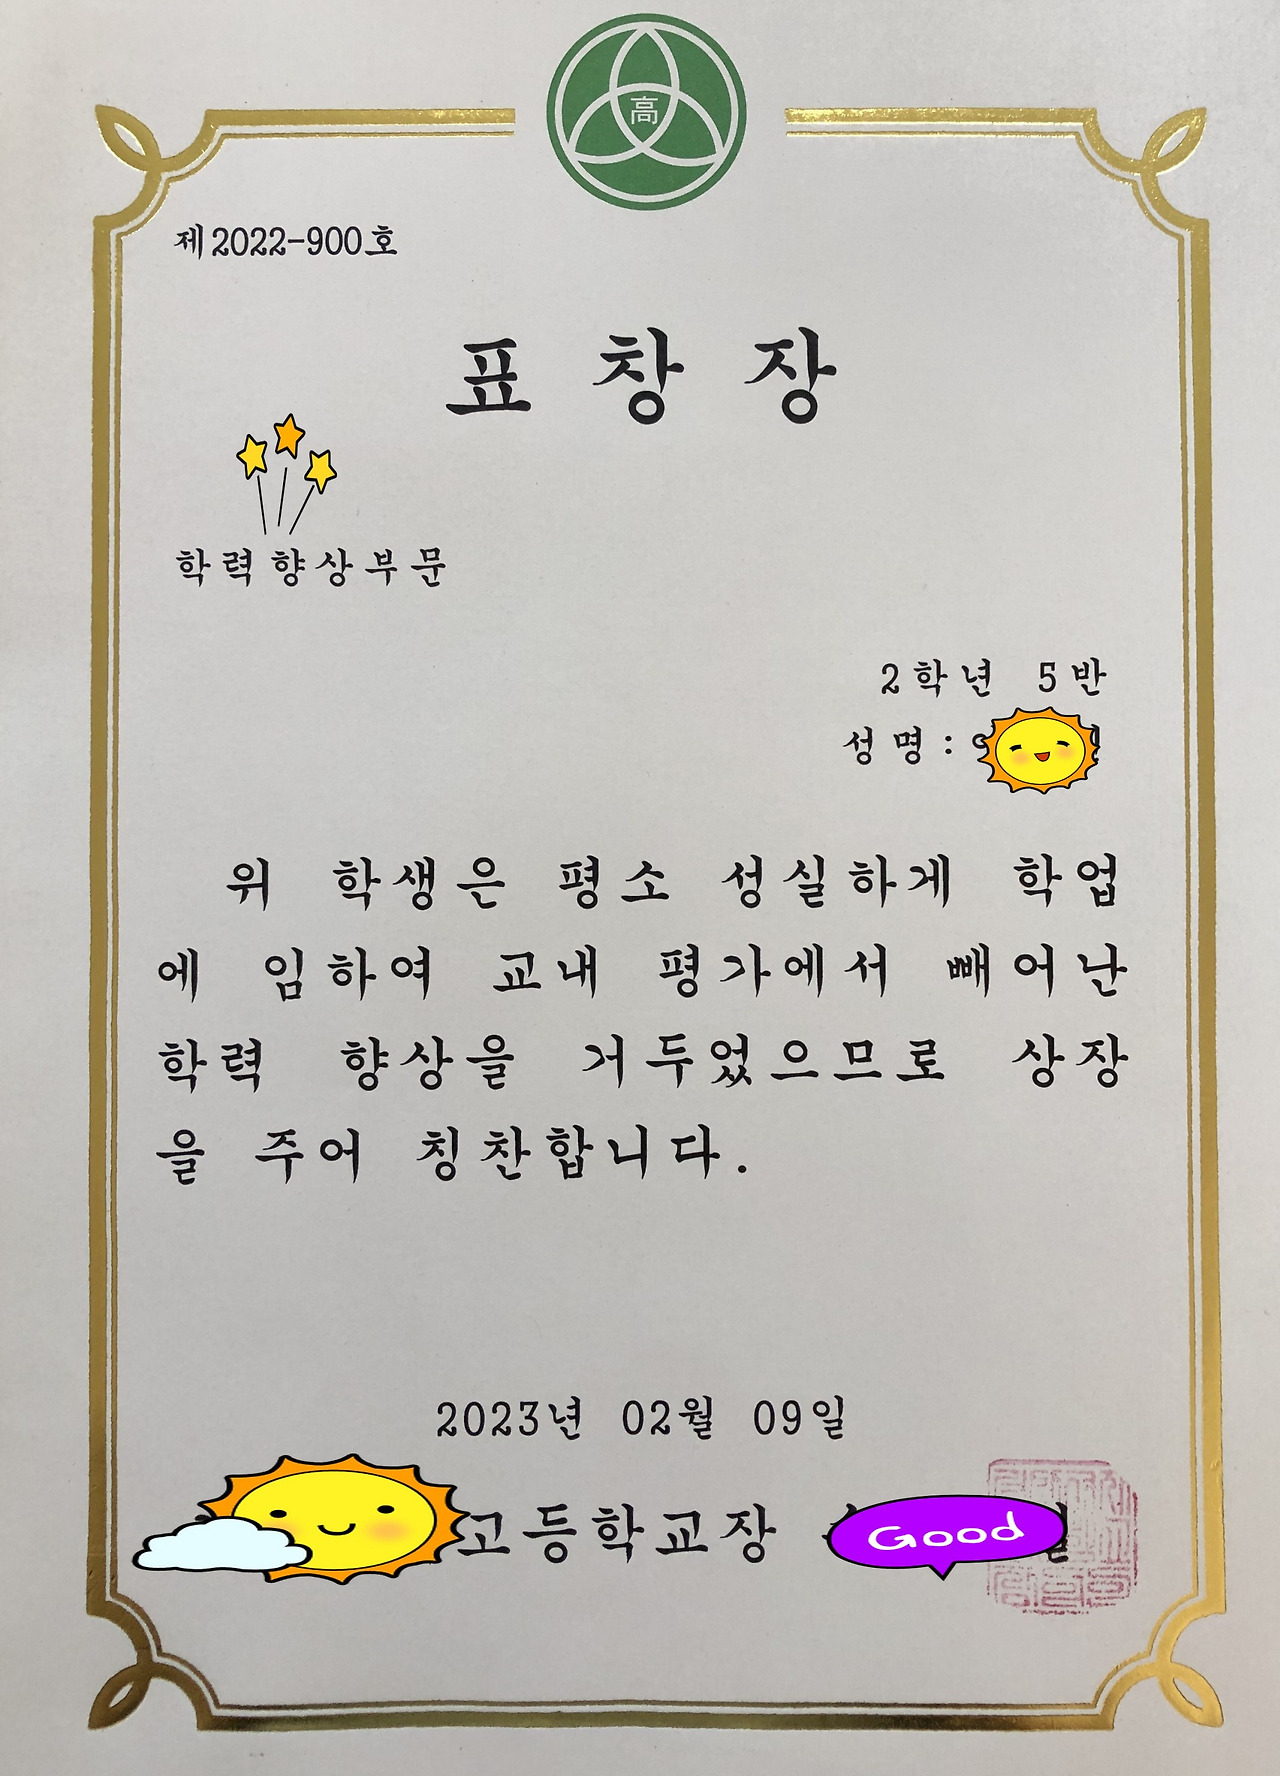 高
제2022-900호
표창장
학력향상부문
2학년 5반
성명:
위 학생은 평소 성실하게 학업
에 임하여 교내 평가에서 빼어난
학력 향상을 거두었으므로 상장
을 주어 칭찬합니다.
2023년 02월 09일
고등학교장
Good